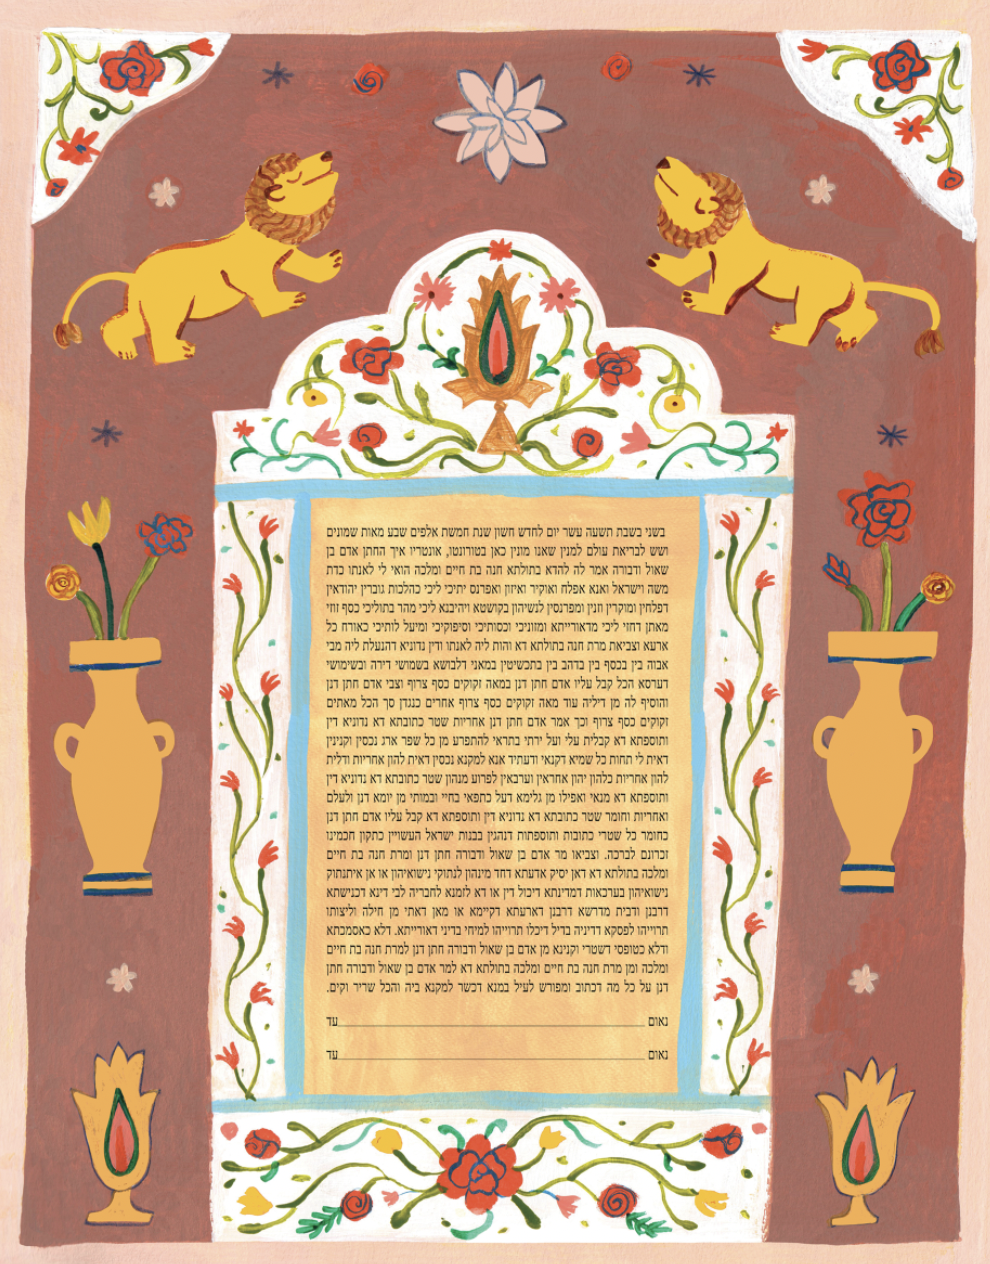 בשני בשבת תשעה עשר יום לחדש חשון שנת חמשת אלפים שבע מאות שמונים
ושש לבריאת עולם למנין שאנו מונין כאן בטורונטו, אונטריו איך החתן אדם בן
שאול ודבורה אמר לה להדא בתולתא חנה בת חיים ומלכה הואי לי לאנתו כדת
משה וישראל ואנא אפלח ואוקיר ואיזון ואפרנס יתיכי ליכי כהלכות גוברין יהודאין
דפלחין ומוקרין וזנין ומפרנסין לנשיהון בקושטא ויהיבנא ליכי מהר בתוליכי כסף זוזי
מאתן דחזי ליכי מדאורייתא ומזוניכי וכסותיכי וסיפוקיכי ומיעל לותיכי כאורח כל
ארעא וצביאת מרת חנה בתולתא דא והות ליה לאנתו ודין נדוניא דהנעלת ליה מבי
אבוה בין בכסף בין בדהב בין בתכשיטין במאני דלבושא בשמושי דירה ובשימושי
דערסא הכל קבל עליו אדם חתן דנן במאה זקוקים כסף צרוף וצבי אדם חתן דנן
והוסיף לה מן דיליה עוד מאה זקוקים כסף צרוף אחרים כנגדן סך הכל מאתים
זקוקים כסף צרוף וכך אמר אדם חתן דנן אחריות שטר כתובתא דא נדוניא דין
ותוספתא דא קבלית עלי ועל ירתי בתראי להתפרע מן כל שפר ארג נכסין וקנינין
דאית לי תחות כל שמיא דקנאי ודעתיד אנא למקנא נכסין דאית להון אחריות ודלית
להון אחריות כלהון יהון אחראין וערבאין לפרוע מנהון שטר כתובתא דא נדוניא דין
ותוספתא דא מנאי ואפילו מן גלימא דעל כתפאי בחיי ובמותי מן יומא דנן ולעלם
ואחריות וחומר שטר כתובתא דא נדוניא דין ותוספתא דא קבל עליו אדם חתן דנן
כחומר כל שטרי כתובות ותוספתות דנהגין בבנות ישראל העשויין כתקון חכמינו
זכרונם לברכה. וצביאו מר אדם בן שאול ודבורה חתן דנן ומרת חנה בת חיים
ומלכה בתולתא דא דאן יסיק אדעתא דחד מינהון לנתוקי נישואיהון או אן איתנתוק
נישואיהון בערכאות דמדינתא דיכול דין או דא לזמנא לחבריה לבי דינא דכנישתא
דרבנן ודבית מדרשא דרבנן דארעתא דקיימא או מאן דאתי מן חילה וליצותו
תרוייהו לפסקא דדיניה בדיל דיכלו תרוייהו למיחי בדיני דאורייתא. דלא כאסמכתא
ודלא כטופסי דשטרי וקנינא מן אדם בן שאול ודבורה חתן דנן למרת חנה בת חיים
ומלכה ומן מרת חנה בת חיים ומלכה בתולתא דא למר אדם בן שאול ודבורה חתן
דנן על כל מה דכתוב ומפורש לעיל במנא דכשר למקנא ביה והכל שריר וקים.
נאום עד
נאום עד